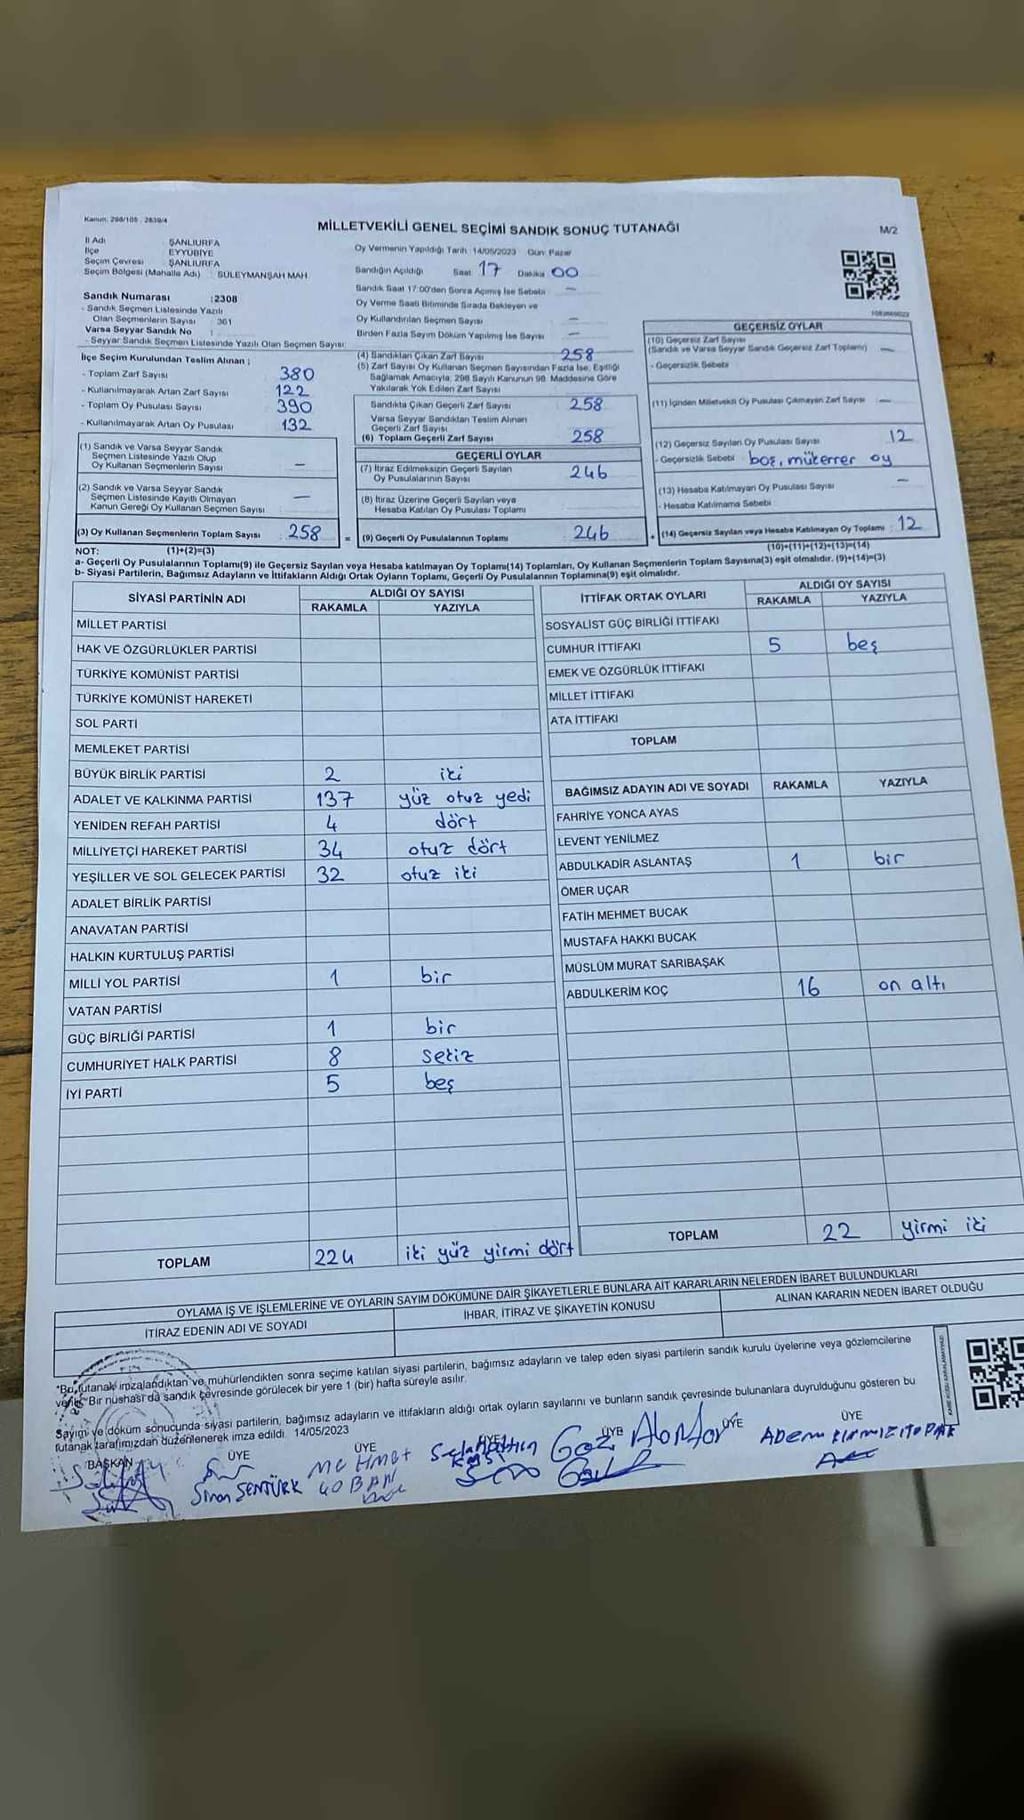 Kanun: 298/105 - 2839/4
MİLLETVEKİLİ GENEL SEÇİMİ SANDIK SONUÇ TUTANAĞI
M/2
İl Adı : ŞANLIURFA
İlçe : EYYÜBİYE
Seçim Çevresi : ŞANLIURFA
Seçim Bölgesi (Mahalle Adı) : SÜLEYMANŞAH MAH
Oy Vermenin Yapıldığı Tarih: 14/05/2023 Gün: Pazar
Sandığın Açıldığı Saat 17 Dakika 00
Sandık Saat 17:00'den Sonra Açılmış İse Sebebi —
Oy Verme Saati Bitiminde Sırada Bekleyen ve
Oy Kullandırılan Seçmen Sayısı —
Birden Fazla Sayım Döküm Yapılmış İse Sayısı —
Sandık Numarası : 2308
- Sandık Seçmen Listesinde Yazılı
Olan Seçmenlerin Sayısı : 361
Varsa Seyyar Sandık No :
- Seyyar Sandık Seçmen Listesinde Yazılı Olan Seçmen Sayısı:
İlçe Seçim Kurulundan Teslim Alınan ;
- Toplam Zarf Sayısı 380
- Kullanılmayarak Artan Zarf Sayısı 122
- Toplam Oy Pusulası Sayısı 390
- Kullanılmayarak Artan Oy Pusulası 132
(1) Sandık ve Varsa Seyyar Sandık
Seçmen Listesinde Yazılı Olup
Oy Kullanan Seçmenlerin Sayısı —
(2) Sandık ve Varsa Seyyar Sandık
Seçmen Listesinde Kayıtlı Olmayan
Kanun Gereği Oy Kullanan Seçmen Sayısı —
(3) Oy Kullanan Seçmenlerin Toplam Sayısı 258
(4) Sandıktan Çıkan Zarf Sayısı 258
(5) Zarf Sayısı Oy Kullanan Seçmen Sayısından Fazla İse, Eşitliği
Sağlamak Amacıyla, 298 Sayılı Kanunun 98. Maddesine Göre
Yakılarak Yok Edilen Zarf Sayısı
Sandıkta Çıkan Geçerli Zarf Sayısı 258
Varsa Seyyar Sandıktan Teslim Alınan
Geçerli Zarf Sayısı
(6) Toplam Geçerli Zarf Sayısı 258
GEÇERLİ OYLAR
(7) İtiraz Edilmeksizin Geçerli Sayılan
Oy Pusulalarının Sayısı 246
(8) İtiraz Üzerine Geçerli Sayılan veya
Hesaba Katılan Oy Pusulası Toplamı
= (9) Geçerli Oy Pusulalarının Toplamı 246
GEÇERSİZ OYLAR
(10) Geçersiz Zarf Sayısı
(Sandık ve Varsa Seyyar Sandık Geçersiz Zarf Toplamı) —
- Geçersizlik Sebebi
(11) İçinden Milletvekili Oy Pusulası Çıkmayan Zarf Sayısı —
(12) Geçersiz Sayılan Oy Pusulası Sayısı 12
- Geçersizlik Sebebi boş, mükerrer oy
(13) Hesaba Katılmayan Oy Pusulası Sayısı —
- Hesaba Katılmama Sebebi
+ (14) Geçersiz Sayılan veya Hesaba Katılmayan Oy Toplamı 12
NOT: (1)+(2)=(3)
(10)+(11)+(12)+(13)=(14)
a- Geçerli Oy Pusulalarının Toplamı(9) ile Geçersiz Sayılan veya Hesaba katılmayan Oy Toplamı(14) Toplamları, Oy Kullanan Seçmenlerin Toplam Sayısına(3) eşit olmalıdır. (9)+(14)=(3)
b- Siyasi Partilerin, Bağımsız Adayların ve İttifakların Aldığı Ortak Oyların Toplamı, Geçerli Oy Pusulalarının Toplamına(9) eşit olmalıdır.
SİYASİ PARTİNİN ADI ALDIĞI OY SAYISI
RAKAMLA YAZIYLA
MİLLET PARTİSİ
HAK VE ÖZGÜRLÜKLER PARTİSİ
TÜRKİYE KOMÜNİST PARTİSİ
TÜRKİYE KOMÜNİST HAREKETİ
SOL PARTİ
MEMLEKET PARTİSİ
BÜYÜK BİRLİK PARTİSİ 2 iki
ADALET VE KALKINMA PARTİSİ 137 yüz otuz yedi
YENİDEN REFAH PARTİSİ 4 dört
MİLLİYETÇİ HAREKET PARTİSİ 34 otuz dört
YEŞİLLER VE SOL GELECEK PARTİSİ 32 otuz iki
ADALET BİRLİK PARTİSİ
ANAVATAN PARTİSİ
HALKIN KURTULUŞ PARTİSİ
MİLLİ YOL PARTİSİ 1 bir
VATAN PARTİSİ
GÜÇ BİRLİĞİ PARTİSİ 1 bir
CUMHURİYET HALK PARTİSİ 8 sekiz
İYİ PARTİ 5 beş
TOPLAM 224 iki yüz yirmi dört
İTTİFAK ORTAK OYLARI ALDIĞI OY SAYISI
RAKAMLA YAZIYLA
SOSYALİST GÜÇ BİRLİĞİ İTTİFAKI
CUMHUR İTTİFAKI 5 beş
EMEK VE ÖZGÜRLÜK İTTİFAKI
MİLLET İTTİFAKI
ATA İTTİFAKI
TOPLAM
BAĞIMSIZ ADAYIN ADI VE SOYADI RAKAMLA YAZIYLA
FAHRİYE YONCA AYAS
LEVENT YENİLMEZ
ABDULKADİR ASLANTAŞ 1 bir
ÖMER UÇAR
FATİH MEHMET BUCAK
MUSTAFA HAKKI BUCAK
MÜSLÜM MURAT SARIBAŞAK
ABDULKERİM KOÇ 16 on altı
TOPLAM 22 yirmi iki
OYLAMA İŞ VE İŞLEMLERİNE VE OYLARIN SAYIM DÖKÜMÜNE DAİR ŞİKAYETLERLE BUNLARA AİT KARARLARIN NELERDEN İBARET BULUNDUKLARI
İTİRAZ EDENİN ADI VE SOYADI
İHBAR, İTİRAZ VE ŞİKAYETİN KONUSU
ALINAN KARARIN NEDEN İBARET OLDUĞU
*Bu tutanak imzalandıktan ve mühürlendikten sonra seçime katılan siyasi partilerin, bağımsız adayların ve talep eden siyasi partilerin sandık kurulu üyelerine veya gözlemcilerine
verilir. Bir nüshası da sandık çevresinde görülecek bir yere 1 (bir) hafta süreyle asılır.
Sayım ve döküm sonucunda siyasi partilerin, bağımsız adayların ve ittifakların aldığı ortak oyların sayılarını ve bunların sandık çevresinde bulunanlara duyrulduğunu gösteren bu
tutanak tarafımızdan düzenlenerek imza edildi. 14/05/2023
BAŞKAN ÜYE ÜYE ÜYE ÜYE ÜYE ÜYE
Sinan ŞENTÜRK
Mehmet ÇOBAN
Adem KIRMIZITOPRAK